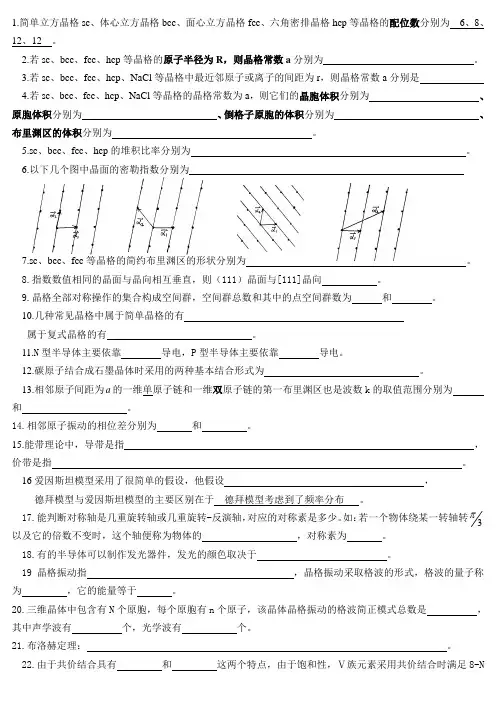 1.简单立方晶格 sc、体心立方晶格 bcc、面心立方晶格 fcc、六角密排晶格 hcp 等晶格的配位数分别为 6、8、
12、12 。
2.若 sc、bcc、fcc、hcp 等晶格的原子半径为 R，则晶格常数 a 分别为 。
3.若 sc、bcc、fcc、hcp、NaCl 等晶格中最近邻原子或离子的间距为 r，则晶格常数 a 分别是
4.若 sc、bcc、fcc、hcp、NaCl 等晶格的晶格常数为 a，则它们的晶胞体积分别为 、
原胞体积分别为 、倒格子原胞的体积分别为 、
布里渊区的体积分别为 。
5.sc、bcc、fcc、hcp 的堆积比率分别为 。
6.以下几个图中晶面的密勒指数分别为
7.sc、bcc、fcc 等晶格的简约布里渊区的形状分别为 。
8.指数数值相同的晶面与晶向相互垂直，则（111）晶面与[111]晶向 。
9.晶格全部对称操作的集合构成空间群，空间群总数和其中的点空间群数为 和 。
10.几种常见晶格中属于简单晶格的有
属于复式晶格的有 。
11.N 型半导体主要依靠 导电，P 型半导体主要依靠 导电。
12.碳原子结合成石墨晶体时采用的两种基本结合形式为 。
13.相邻原子间距为 a 的一维单原子链和一维双原子链的第一布里渊区也是波数 k 的取值范围分别为
和 。
14.相邻原子振动的相位差分别为 和 。
15.能带理论中，导带是指 ，
价带是指 。
16 爱因斯坦模型采用了很简单的假设，他假设 ，
德拜模型与爱因斯坦模型的主要区别在于 德拜模型考虑到了频率分布 。
17.能判断对称轴是几重旋转轴或几重旋转-反演轴，对应的对称素是多少。如：若一个物体绕某一转轴转 π/3
以及它的倍数不变时，这个轴便称为物体的 ，对称素为 。
18.有的半导体可以制作发光器件，发光的颜色取决于 。
19 晶格振动指 ，晶格振动采取格波的形式，格波的量子称
为 ，它的能量等于 。
20.三维晶体中包含有 N 个原胞，每个原胞有 n 个原子，该晶体晶格振动的格波简正模式总数是 ，
其中声学波有 个，光学波有 个。
21.布洛赫定理： 。
22.由于共价结合具有 和 这两个特点，由于饱和性，Ⅴ族元素采用共价结合时满足 8-N